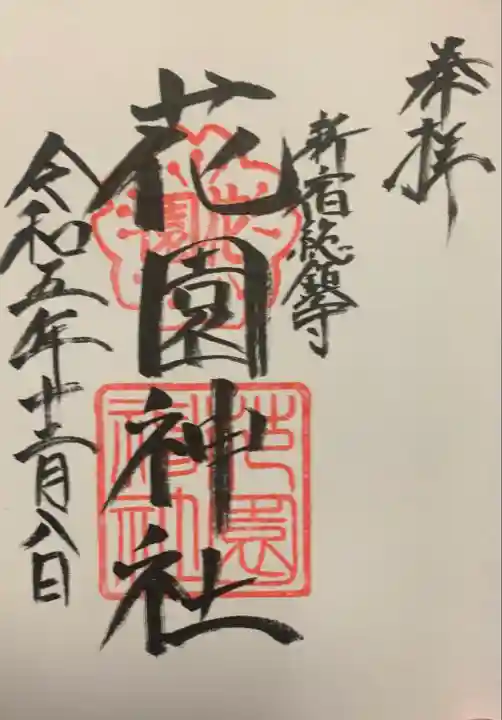 奉拝
新宿総鎮守
花園神社
花園
花園神社
令和五年十二月八日